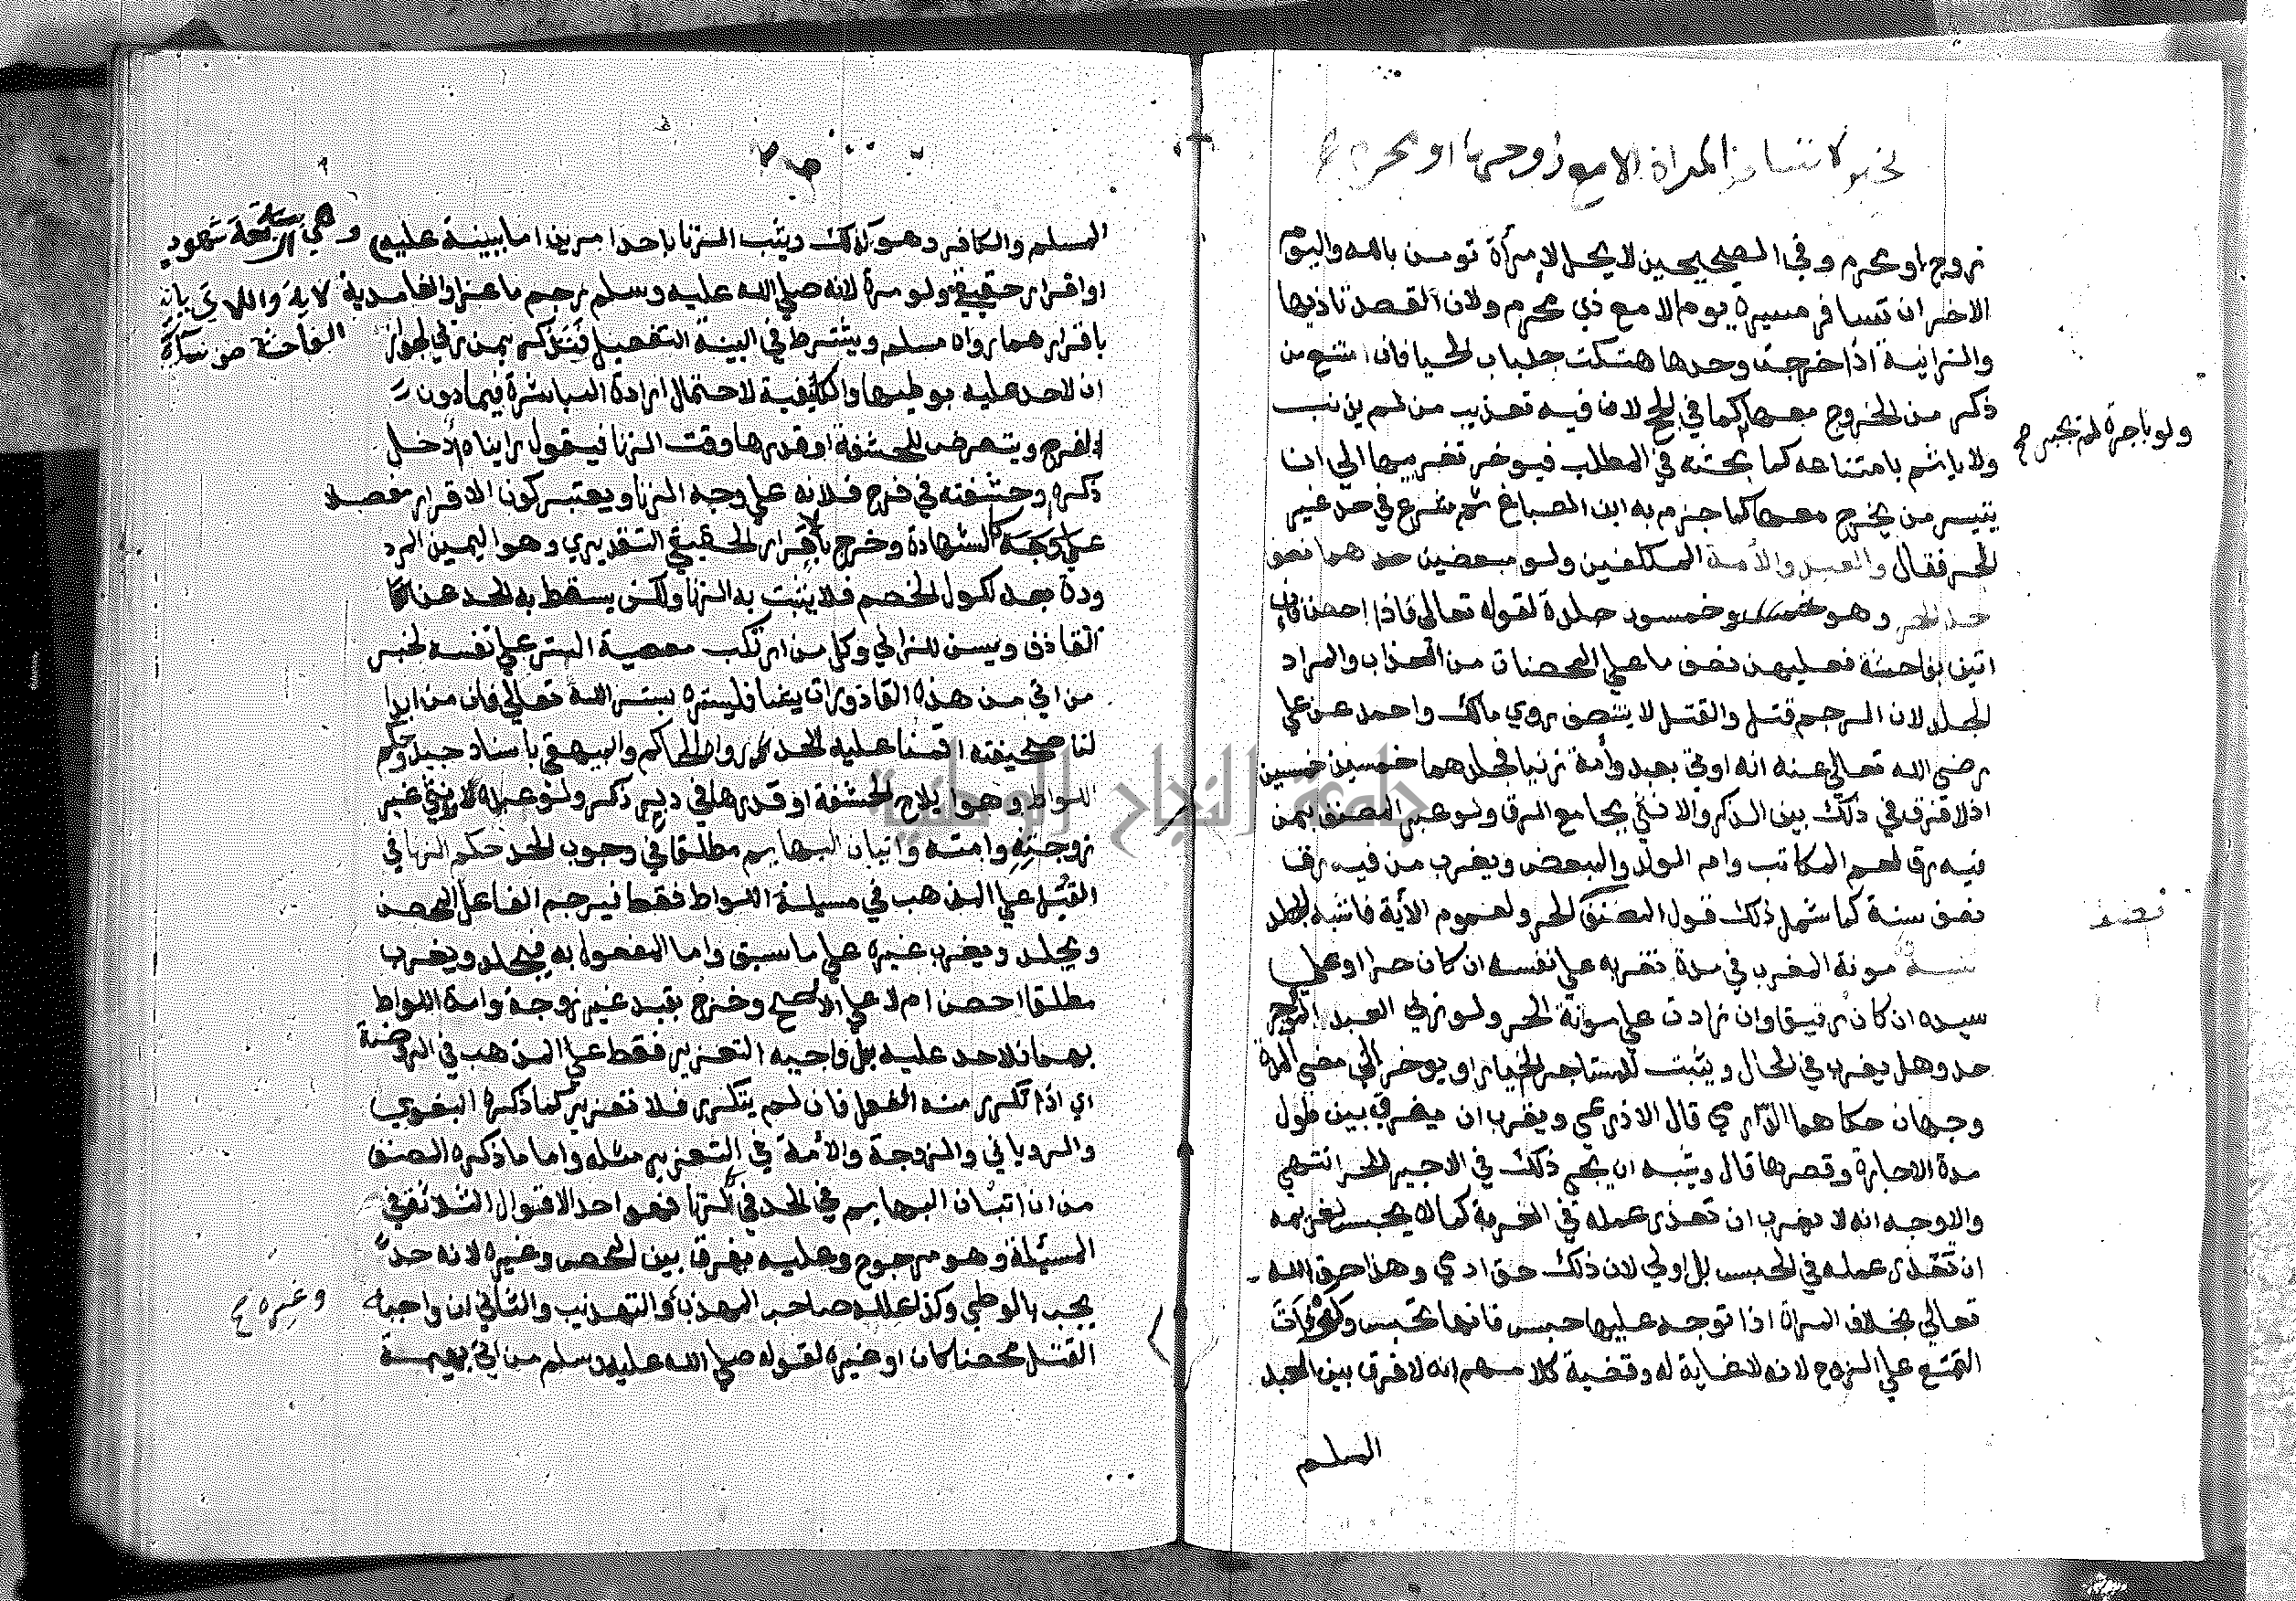 لخبر لا تسافر المراة الا مع زوجها او محرم
زوج او محرم وفي الصحيحين لا يحل لامرأة تومن بالله واليوم
الاخر ان تسافر مسيرة يوم الا مع ذي محرم ولان القصد تاذيبها
والزانية اذا خرجت وحدها هتكت جلباب الحيا فان امتنع من
ذكر من الخروج معها كما في الحج لان فيه تعذيب من لم يذنب
ولو باجرة لم يجبر
ولا ياثم بامتناعه كما بحثه في المطلب فيوخر تغريبها الي ان
يتيسر من يخرج معها كما جزم به ابن الصباغ ثم شرع في حد غير
الحر فقال والعبد والأمة المكلفين ولو مبعضين حدهما نصف
حد الحر وهو خمسون جلدة لقوله تعالى فاذا احصن فان
اتين بفاحشة فعليهن نصف ما علي المحصنات من العذاب والمراد
الجلد لان الرجم قتل والقتل لا يتنصف روي مالك واحمد عن علي
رضي الله تعالي عنه انه اوتي بعبد وأمة زنيا فجلدهما خمسين خمسين
اذ لا فرق في ذلك بين الذكر والانثي بجامع الرق ولو عبر المصنف بمن
فيه رق لعم المكاتب وام الولد والمبعض ويغرب من فيه رق
نصف سنة كما شمل ذلك قول المصنف الحر ولعموم الأية فاشبه الجلد
نصف
مونة المغرب في مدة تغريبه علي نفسه ان كان حرا او علي
سيده ان كان رقيقا وان زادت علي مونة الحضر ولو زني العبد الموجر
حد وهل يغرب في الحال ويثبت للمستاجر الخيار او يوخر الي مضي المدة
وجهان حكاهما الدارمي قال الاذرعي ويقرب ان يفرق بين طول
مدة الاجارة وقصرها قال ويشبه ان يجي ذلك في الاجير الحر انتهي
والاوجه انه لا يغرب ان تعذر عمله في الغربة كما لا يحبس لغريمه
ان تعذر عمله في الحبس بل اولي لان ذلك حق ادمي وهذا حق الله
تعالي بخلاف المراة اذا توجه عليها حبس فانها تحبس ولو فات
التمتع علي الزوج لانه لا غاية له وقضية كلامهم انه لا فرق بين العبد
المسلم
المسلم والكافر وهو كذلك ويثبت الزنا باحد امرين اما ببينة عليه وهي اربعة شهود
او اقرار حقيقي ولو مرة لانه صلي الله عليه وسلم رجم ماعزا والغامدية لاية واللاتي ياتين
باقرارهما رواه مسلم ويشترط في البينة التفصيل فتذكر بمن زني لجواز الفاحشة من نسائكم
ان لا حد عليه بوطيها والكيفية لاحتمال ارادة المباشرة فيما دون
الفرج ويتعرض للحشفة او قدرها وقت الزنا فيقول رايناه ادخل
ذكره وحشفته في فرج فلانة علي وجه الزنا ويعتبر كون الاقرار مفصلا
علي وجه كالشهادة وخرج بالاقرار الحقيقي التقديري وهو اليمين المرد
ودة بعد نكول الخصم فلا يثبت به الزنا ولكن يسقط به الحد عن
القاذف ويسن للزاني وكل من ارتكب معصية الستر علي نفسه لخبر
من اتي من هذه القاذورات شيئا فليستره بستر الله تعالي فان من ابدا
لنا صحيفته اقمنا عليه الحد رواه الحاكم والبيهقي باسناد جيد وحكم
اللواط وهو ايلاج الحشفة او قدرها في دبر ذكر ولو عبده او انثي غير
زوجته وامته واتيان البهايم مطلقا في وجوب الحد حكم الزنا في
القبل علي المذهب في مسيلة اللواط فقط فيرجم الفاعل المحصن
ويجلد ويغرب غيره علي ما سبق واما المفعول به فيجلد ويغرب
مطلقا احصن ام لا علي الاصح وخرج بقيد غير زوجة وامة اللواط
بهما فلا حد عليه بل واجبه التعزير فقط علي المذهب في الروضة
اي اذا تكرر منه الفعل فان لم يتكرر فلا تعزير كما ذكره البغوي
والروياني والزوجة والأمة في التعزير مثله واما ما ذكره المصنف
من ان اتيان البهايم في الحد في الزنا فهو احد الاقوال الثلاثة في
المسئلة وهو مرجوح وعليه يفرق بين المحصن وغيره لانه حد
يجب بالوطي وكذا علله صاحب المهذب والتهذيب والثاني ان واجبه
وغيره
القتل محصنا كان او غيره لقوله صلي الله عليه وسلم من اتي بهيمة
جامعة النجاح الوطنية